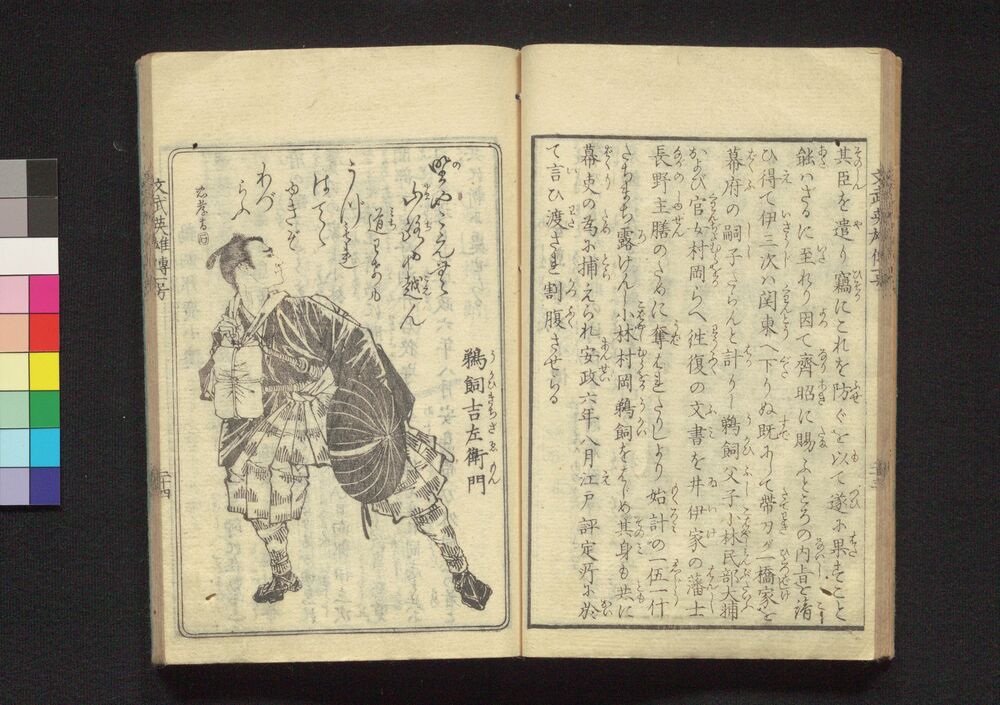 其臣を遣り竊にこれを防ぐを以て遂に果すこと
能はざるに至れり因て齊昭に賜ふところの内旨を請
ひ得て伊三次ハ関東へ下りぬ既にして帯刀ガ一橋家を
幕府の嗣子たらんと計りし鵜飼父子小林民部大輔
および官女村岡らへ往復の文書を井伊家の藩士
長野主膳のために奪はれたりしより始計の一伍一什
たちまち露けんし小林村岡鵜飼をはじめ其身も共に
幕吏の為に捕えられ安政六年八月江戸評定所に於
て言ひ渡され割腹させらる
文武英雄傳一号
鵜飼吉左衛門
山路も越ん
道
はてゝ
ゆきぞ
わづ
らふ
文武英雄傳一号
二十四